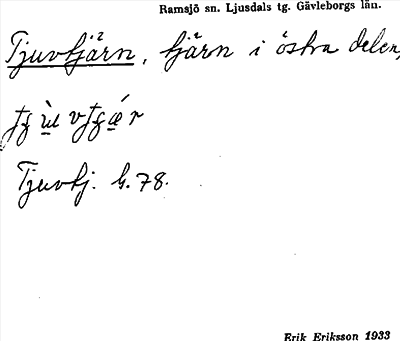 Ramsjö sn. Ljusdals tg. Gävleborgs län.
Tjuvtjärn, tjärn i östra delen,
Tjuvtj. G. 78.
Erik Eriksson 1933